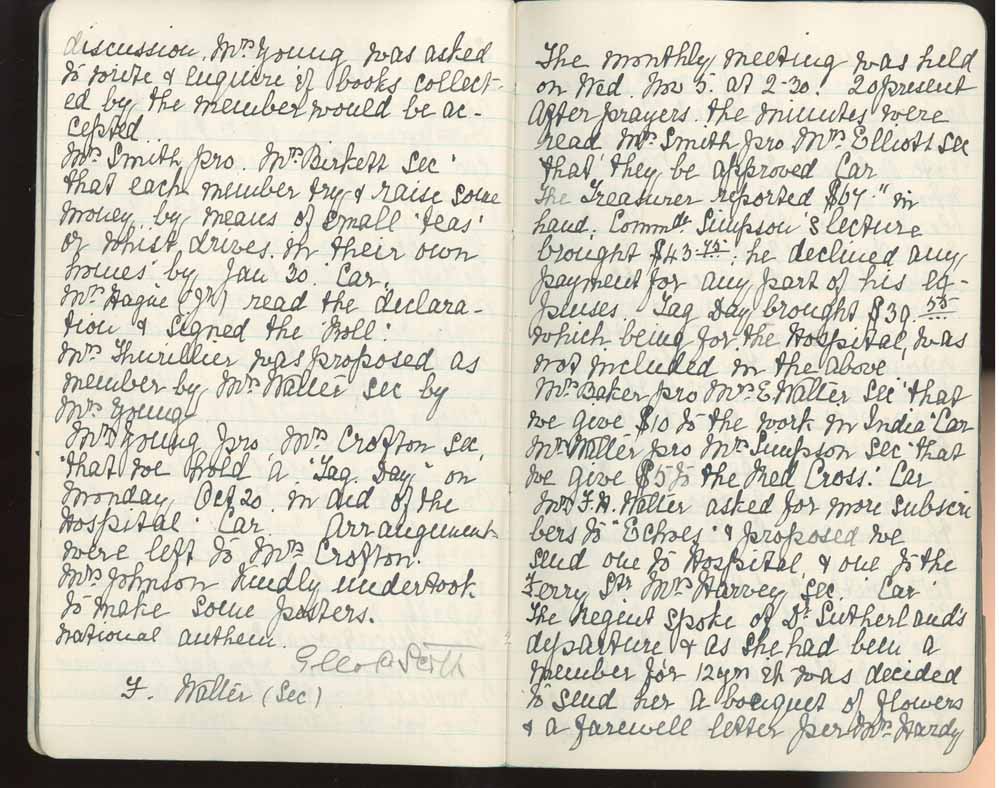 discussion. Mrs Young was asked
to write & enquire if books collect-
ed by the member would be ac-
cepted.
Mrs Smith pro. Mrs Birkett sec "
that each member try & raise some
money by means of small 'teas'
or whist drives in their own
homes" by Jan 30. Car.
Mrs Hague (Jr) read the declara-
tion & signed the Roll.
Mrs Thurillier was proposed as
member by Mrs Walter sec by
Mrs Young
Mrs Young pro, Mrs Crofton sec,
"that we hold a "Tag Day" on
Monday Oct 20. in aid of the
Hospital" Car. Arrangements
were left to Mrs Crofton.
Mrs Johnson kindly undertook
to make some posters.
National anthem.
Scott
F. Walter (Sec)
The monthly meeting was held
on Wed. Nov 5. at 2-30. 20 present
After prayers the minutes were
read Mrs Smith pro Mrs Elliott sec
that they be approved Car
The Treasurer reported $67.11 in
hand. Commdr Simpson's lecture
brought $43.75; he declined any
payment for any part of his ex-
penses. Tag Day brought $39.55
which being for the Hospital, was
not included in the above
Mrs Baker pro Mrs E. Walter sec "that
we give $10 to the work in India" Car
Mrs Walter pro Mrs Simpson sec "that
we give $5 to the Red Cross. Car
Mrs F. H. Walter asked for more subscri
bers to "Echoes" & proposed we
send one to Hospital, & one to the
Ferry Str. Mrs Harvey sec. Car
The Regent spoke of Dr Sutherland's
departure & as she had been a
member for 12 yrs it was decided
to send her a bouquet of flowers
& a farewell letter per Mrs Hardy